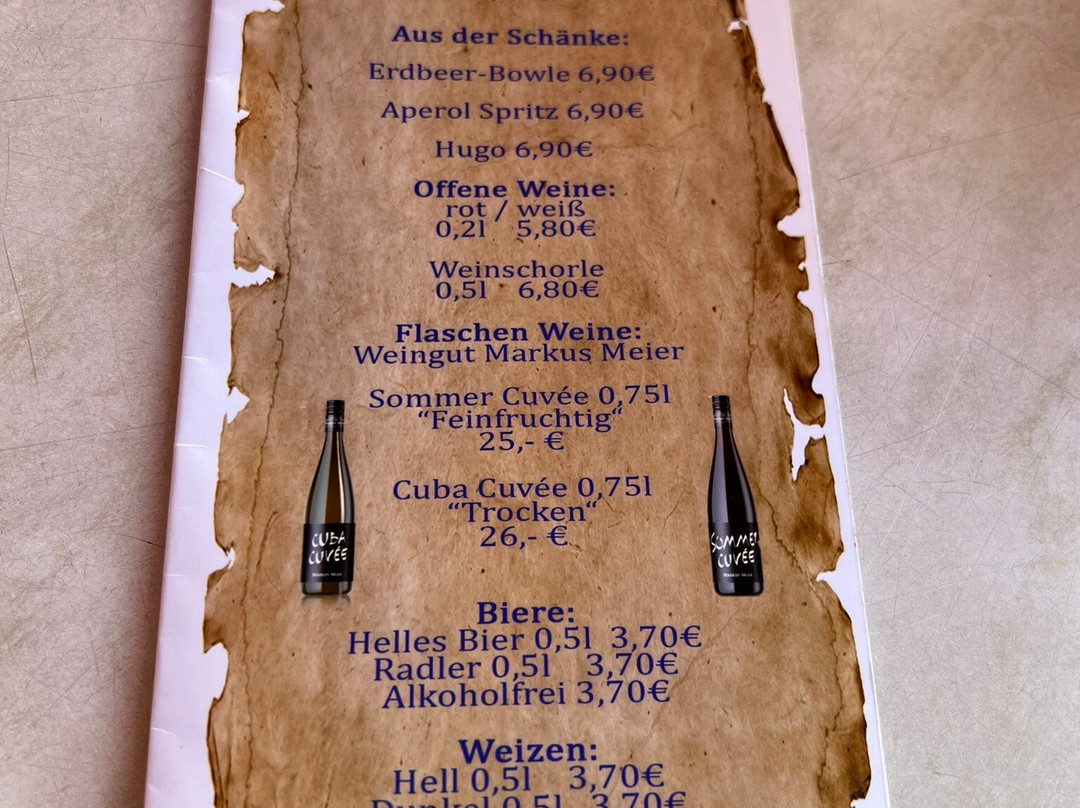 Aus der Schänke:
Erdbeer-Bowle 6,90€
Aperol Spritz 6,90€
Hugo 6,90€
Offene Weine:
rot / weiß
0,2l 5,80€
Weinschorle
0,5l 6,80€
Flaschen Weine:
Weingut Markus Meier
Sommer Cuvée 0,75l
“Feinfruchtig“
25,- €
Cuba Cuvée 0,75l
“Trocken“
26,- €
CUBA
CUVÉE
SOMMER
CUVÉE
Biere:
Helles Bier 0,5l 3,70€
Radler 0,5l 3,70€
Alkoholfrei 3,70€
Weizen:
Hell 0,5l 3,70€
Dunkel 0,5l 3,70€